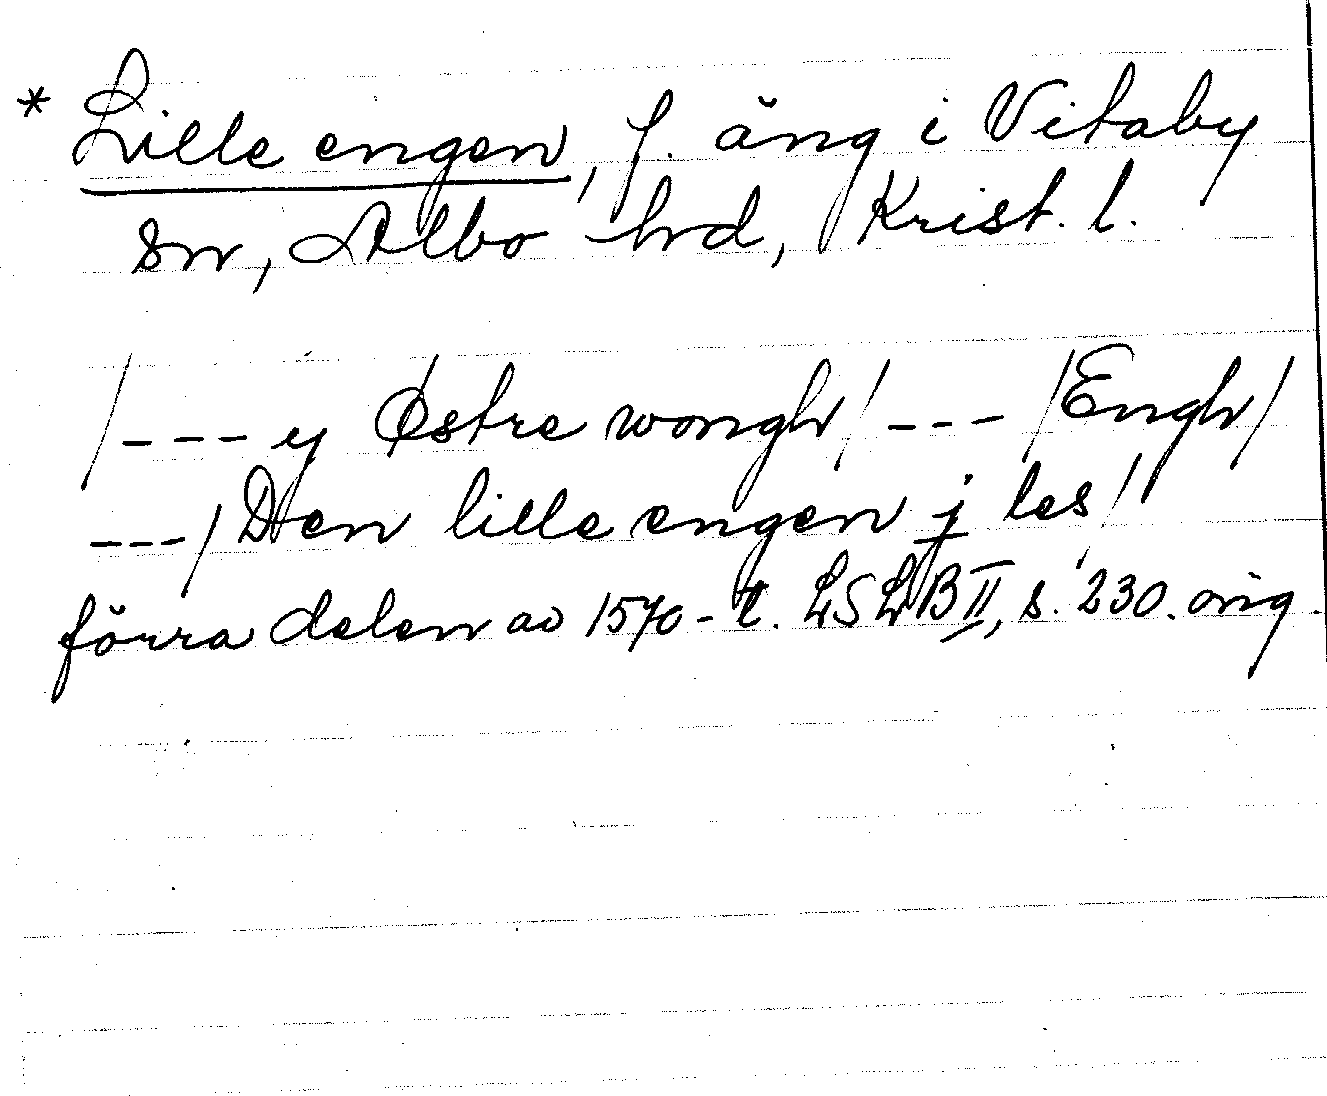 * Lille engen, f. äng i Vitaby
sn, Albo hd, Krist. l.
/--- y Østre wongh/ --- /Engh/
---/ Den lille engen j les/
förra delen av 1570-t. LSLB II, s. 230. orig.